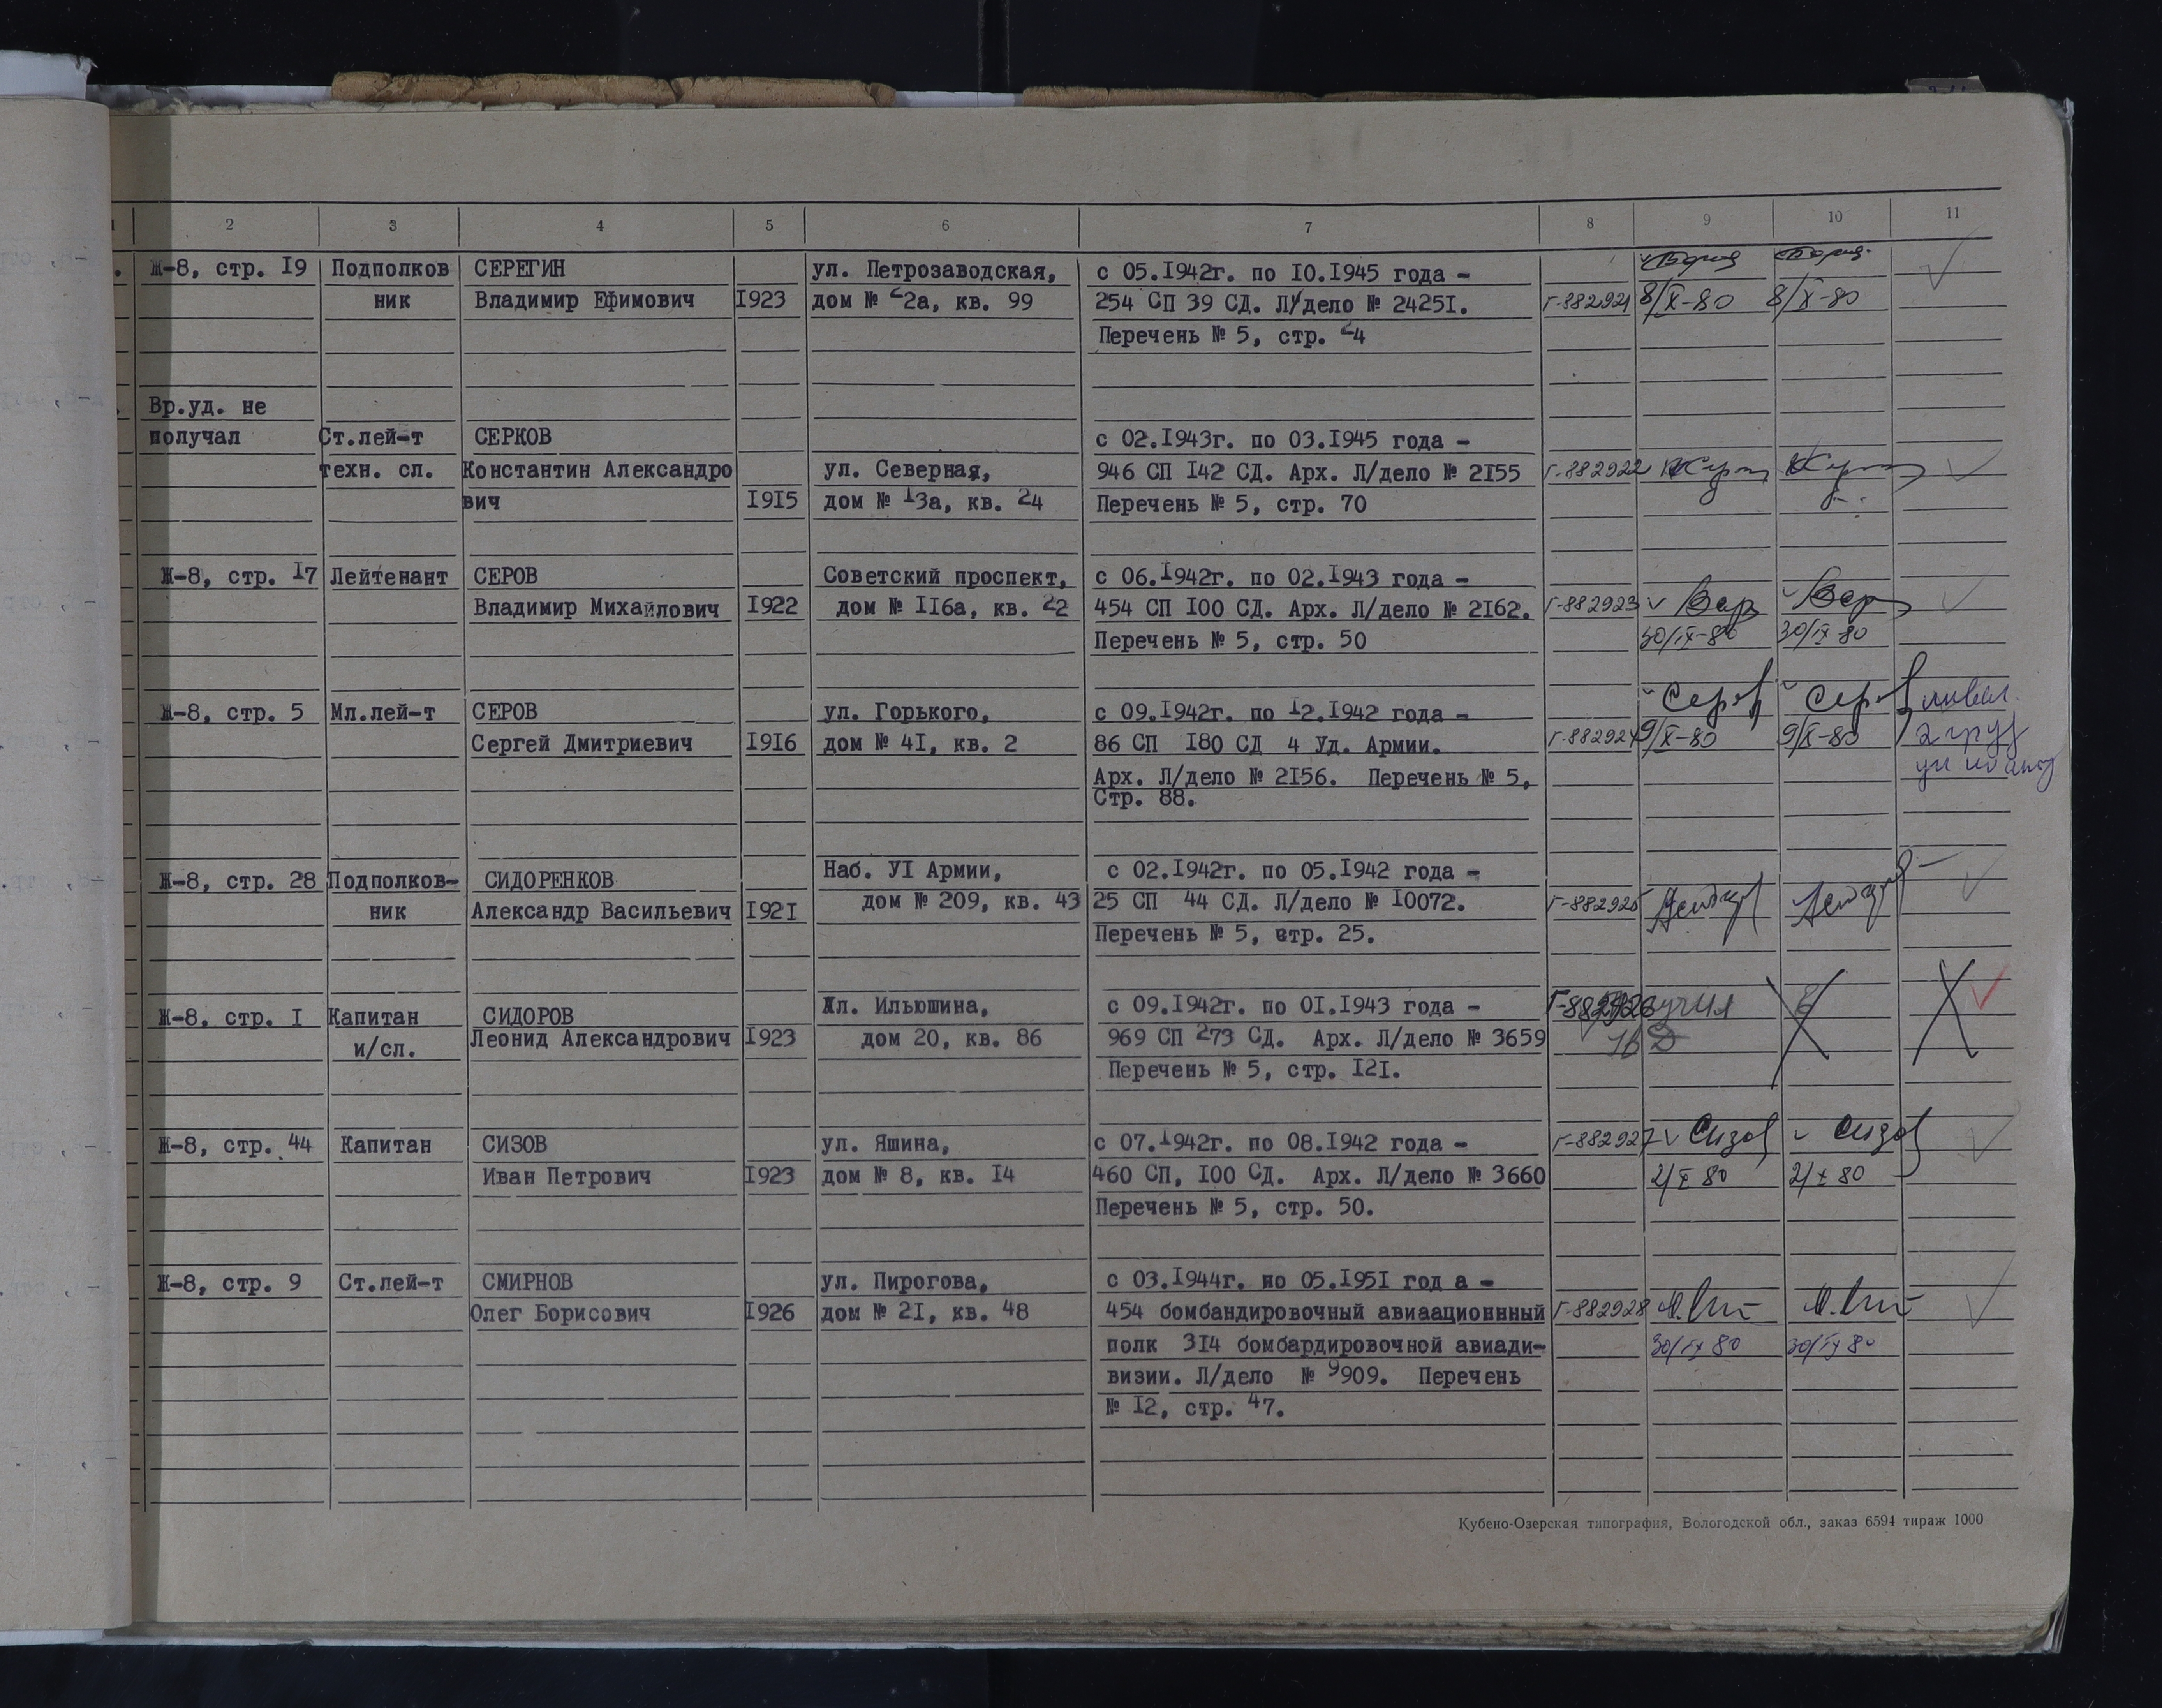 2 3 4 5 6 7 8 9 10 11
Ж-8, стр. I9 Подполков СЕРЕГИН ул. Петрозаводская, с 05.I942г. по I0.I945 года -
ник Владимир Ефимович I923 дом № 2а, кв. 99 254 СП 39 СД. Л/дело № 2425I. Г-882921 8/X-80 8/X-80
Перечень № 5, стр. 24
Вр.уд. не
получал Ст.лей-т СЕРКОВ с 02.I943г. по 03.I945 года -
техн. сл. Константин Александро ул. Северная, 946 СП I42 СД. Арх. Л/дело № 2I55 Г-882922
вич I9I5 дом № I3а, кв. 24 Перечень № 5, стр. 70
Ж-8, стр. I7 Лейтенант СЕРОВ Советский проспект, с 06.I942г. по 02.I943 года -
Владимир Михайлович I922 дом № II6а, кв. 22 454 СП I00 СД. Арх. Л/дело № 2I62. Г-882923
Перечень № 5, стр. 50 30/IX-80 30/IX 80
Ж-8, стр. 5 Мл.лей-т СЕРОВ ул. Горького, с 09.I942г. по I2.I942 года - Серов Серов
Сергей Дмитриевич I9I6 дом № 4I, кв. 2 86 СП I80 СД 4 Уд. Армии. Г-882924 9/X-80 9/X-80 2 груз
Арх. Л/дело № 2I56. Перечень № 5,
Стр. 88.
Ж-8, стр. 28 Подполков- СИДОРЕНКОВ Наб. УI Армии, с 02.I942г. по 05.I942 года -
ник Александр Васильевич I92I дом № 209, кв. 43 25 СП 44 СД. Л/дело № I0072. Г-882925
Перечень № 5, стр. 25.
Ж-8. стр. I Капитан СИДОРОВ Ул. Ильюшина, с 09.I942г. по 0I.I943 года - Г-882926
и/сл. Леонид Александрович I923 дом 20, кв. 86 969 СП 273 СД. Арх. Л/дело № 3659
Перечень № 5, стр. I2I.
Ж-8, стр. 44 Капитан СИЗОВ ул. Яшина, с 07.I942г. по 08.I942 года - Г-882927 Сизов Сизов
Иван Петрович I923 дом № 8, кв. I4 460 СП, I00 СД. Арх. Л/дело № 3660 2/X 80 2/X 80
Перечень № 5, стр. 50.
Ж-8, стр. 9 Ст.лей-т СМИРНОВ ул. Пирогова, с 03.I944г. по 05.I95I год а -
Олег Борисович I926 дом № 2I, кв. 48 454 бомбандировочный авиаационнный Г-882928
полк 3I4 бомбардировочной авиади- 30/IX 80 30/IX 80
визии. Л/дело № 9909. Перечень
№ I2, стр. 47.
Кубено-Озерская типография, Вологодской обл., заказ 6594 тираж 1000